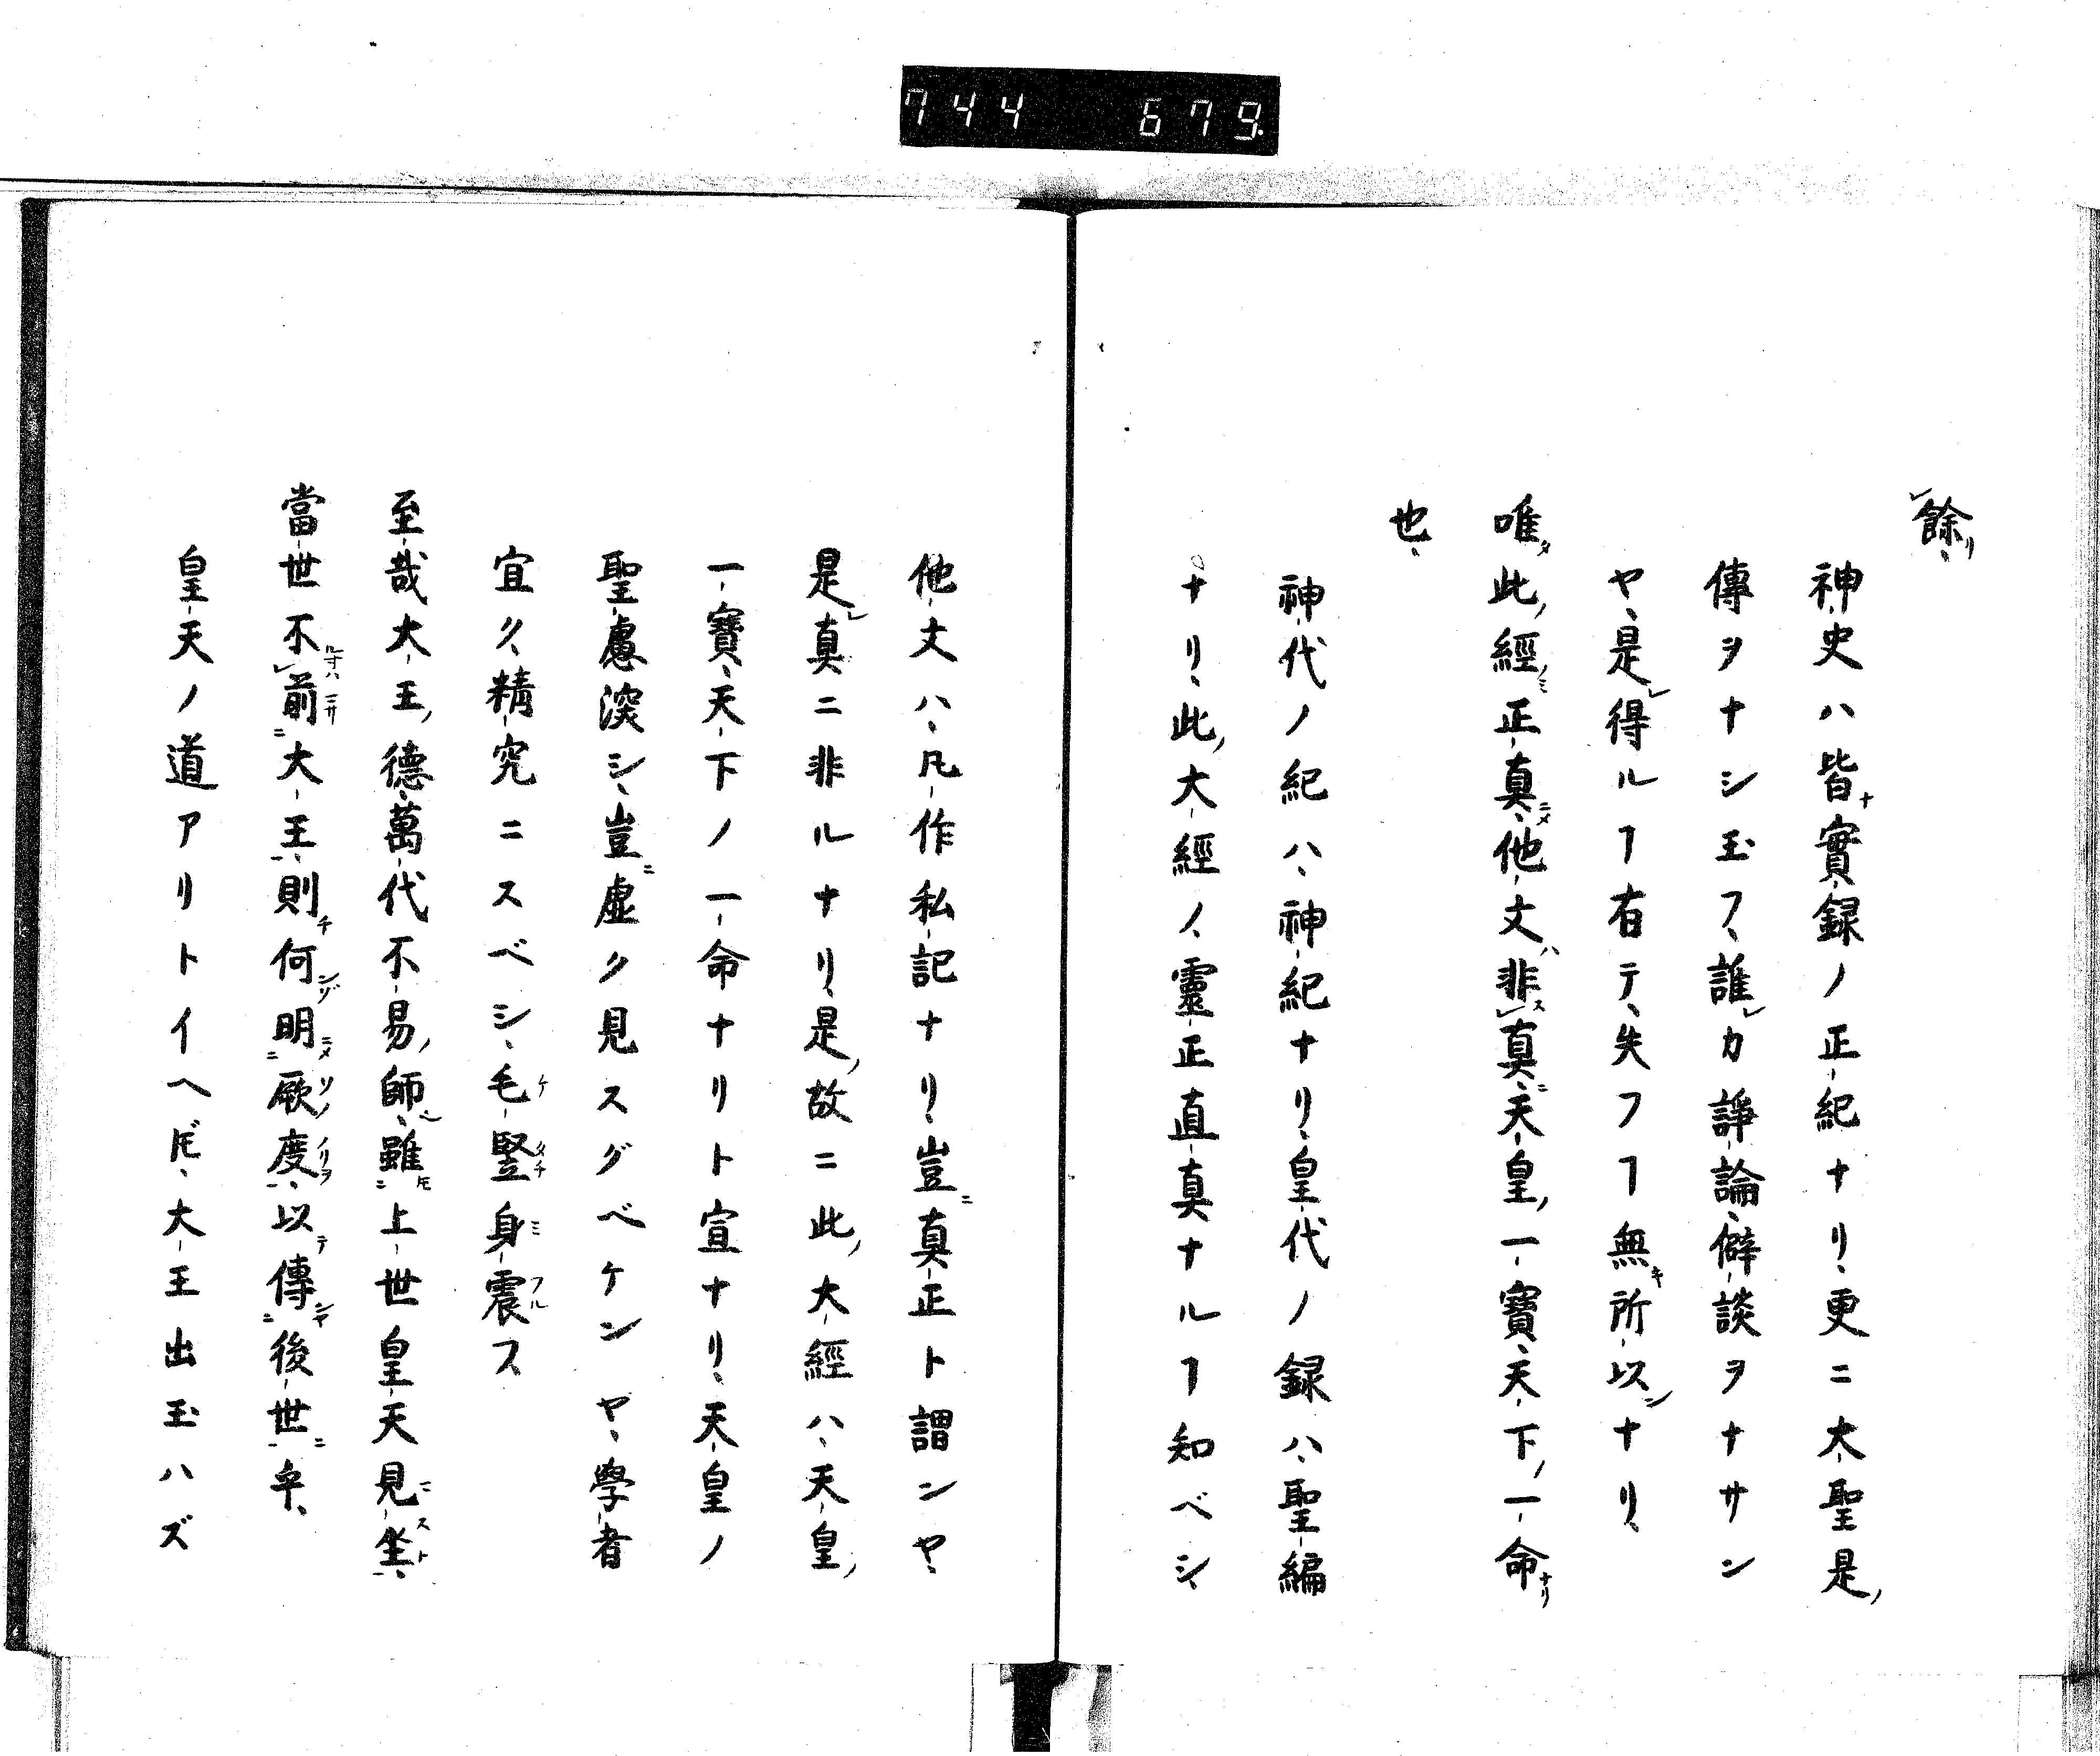 744 679
餘、
神史ハ皆實録ノ正紀ナリ、更ニ大聖是ノ
傳ヲナシ玉フ、誰レカ諍論僻談ヲナサン
ヤ、是レ得ルヿ有テ、失フヿ無キ所以ンナリ、
唯タ此ノ經ノミ正真ニメ、他文ハ非スレ真ニ、天皇ノ一寶、天下ノ一命ナリ
也、
神代ノ紀ハ、神紀ナリ、皇代ノ録ハ、聖編
ナリ、此ノ大經ノ、靈正直真ナルヿ知ベシ、
他文ハ、凡作私記ナリ、豈ニ真正ト謂ンヤ、
是レ真ニ非ルナリ、是ノ故ニ此ノ大經ハ、天皇ノ
一寶、天下ノ一命ナリト宣ナリ、天皇ノ
聖慮深シ、豈ニ虚ク見スグベケンヤ、學者
宜ク精究ニスベシ、毛竪身震フ、
至哉大王ノ德、萬代不易ノ師、雖ニ上世皇天見坐一、
當世不レ前ニ大王一、則何明ニ厥度一、以傳ニ後世一乎、
皇天ノ道アリトイヘ𪜈、大王出玉ハズ